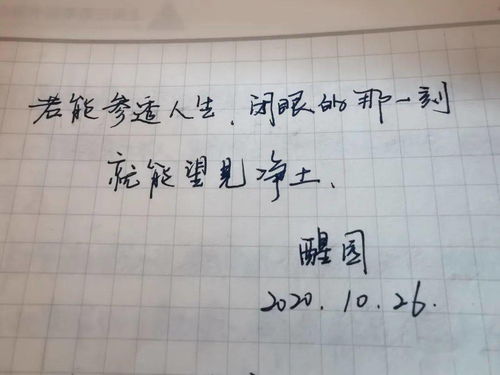 若能参透人生、闭眼的那一刻
就能望见净土、
醒园
2020.10.26.